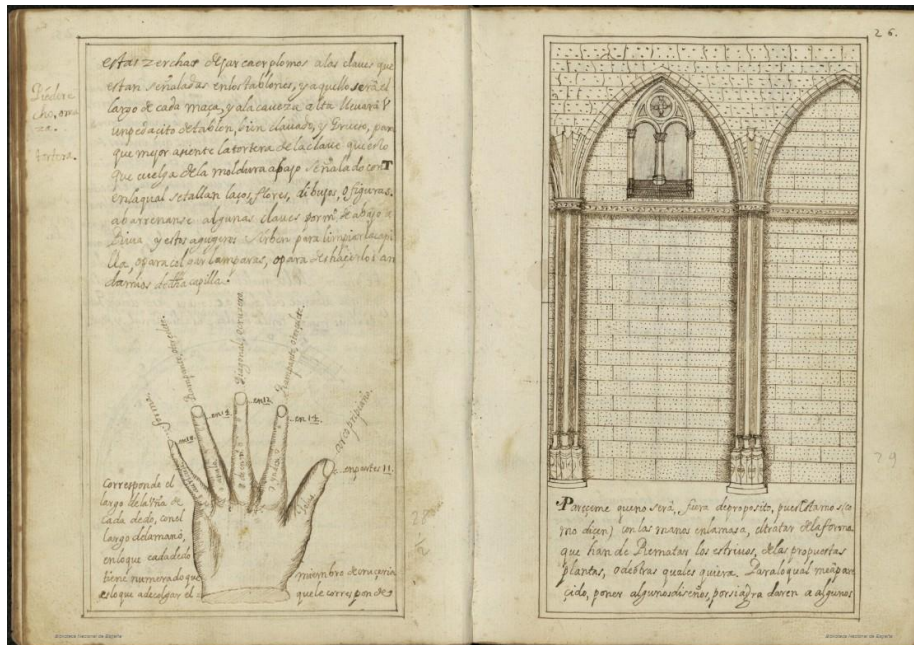 estas zerchas dejar caer plomos a las claves que
estan señaladas en los tablones, y aquello será el
largo de cada maça, y a la caveza alta llevará
un pedaçito de tablon, bien clavado, y grueso, para
que mejor asiente la tortera de la clave que es lo
que cuelga de la moldura abajo señalado con T
en la qual se tallan laços, flores, dibujos, o figuras.
abarrenanse algunas claves de abajo a
Riva y estos agugeros sirben para limpiar la capi
lla, o para colgar lamparas, o para deshacer los an
damios de dha capilla.
Pie derecho, o ma
za.
tortera.
en 18.
en 12.
en 14.
en partes 11.
arco prinpiaño.
Diagonal, o cruzero
Rampante
corresponde el
largo de la Vña de
cada dedo, con el
largo de la mano,
en lo que cada dedo
tiene numerado que
es lo que a de colgar el
miembro de cruçeria
que le corresponde
26.
29
Pareçeme que no será, fuera de proposito, pues estamos (co
mo dicen) con las manos en la masa, el tratar de la forma
que han de Rematar los estrivos, de las propuestas
plantas, o de otras quales quiera. Para lo qual me a pare
çido, poner algunos diseños, por si agradaren a algunos
Biblioteca Nacional de España
Biblioteca Nacional de España